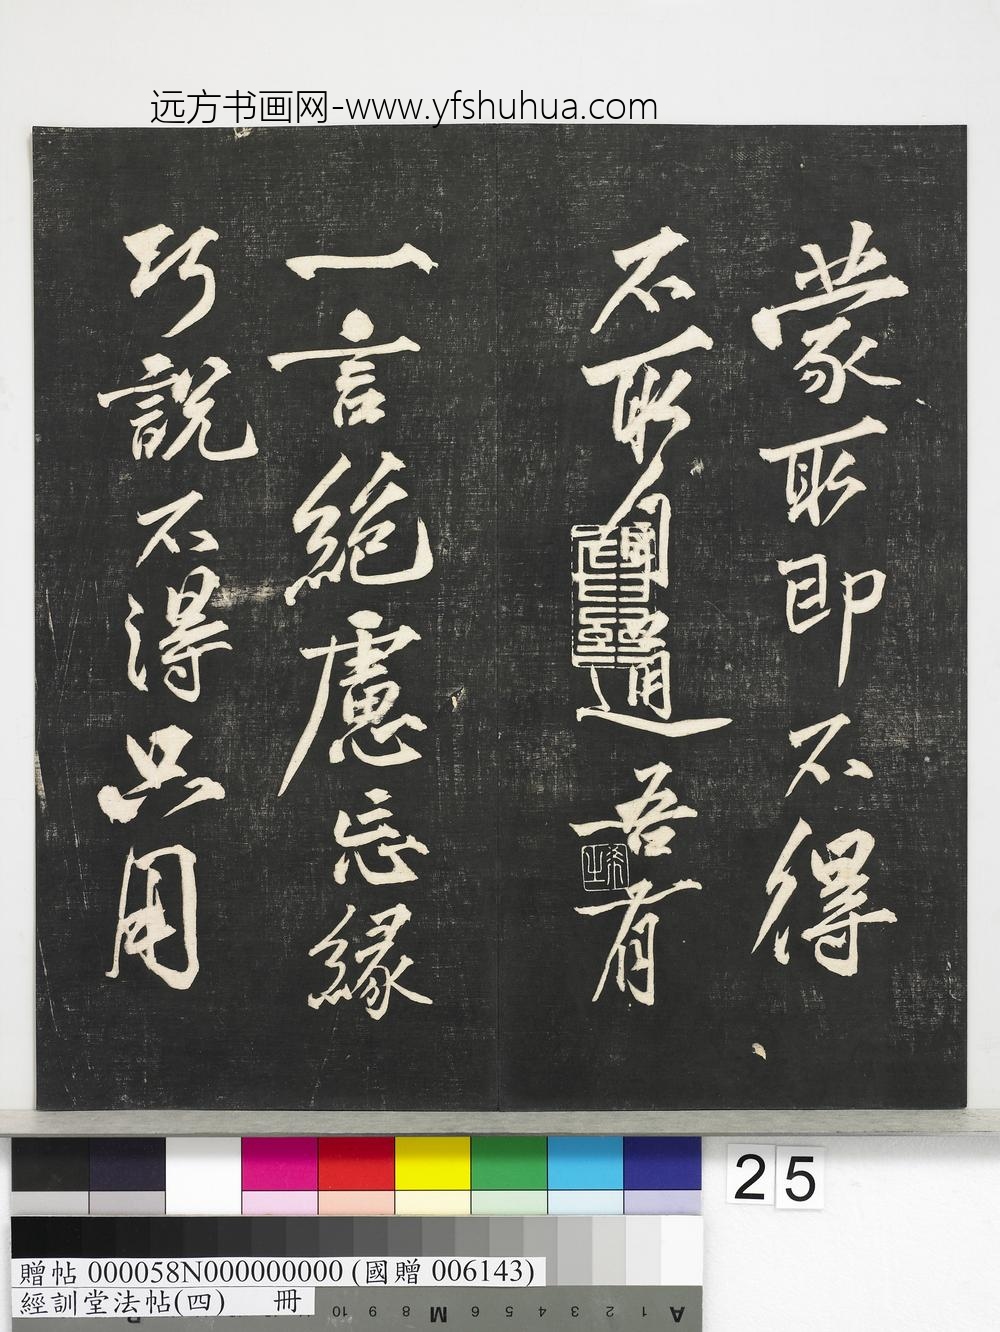 远方书画网-www.yfshuhua.com
蒙取即不得
不取自通吾有
一言絕慮忘緣
巧說不得只用
25
贈帖 000058N000000000 (國贈 006143)
經訓堂法帖(四) 冊
A 1 2 3 4 5 6 M 8 9 10